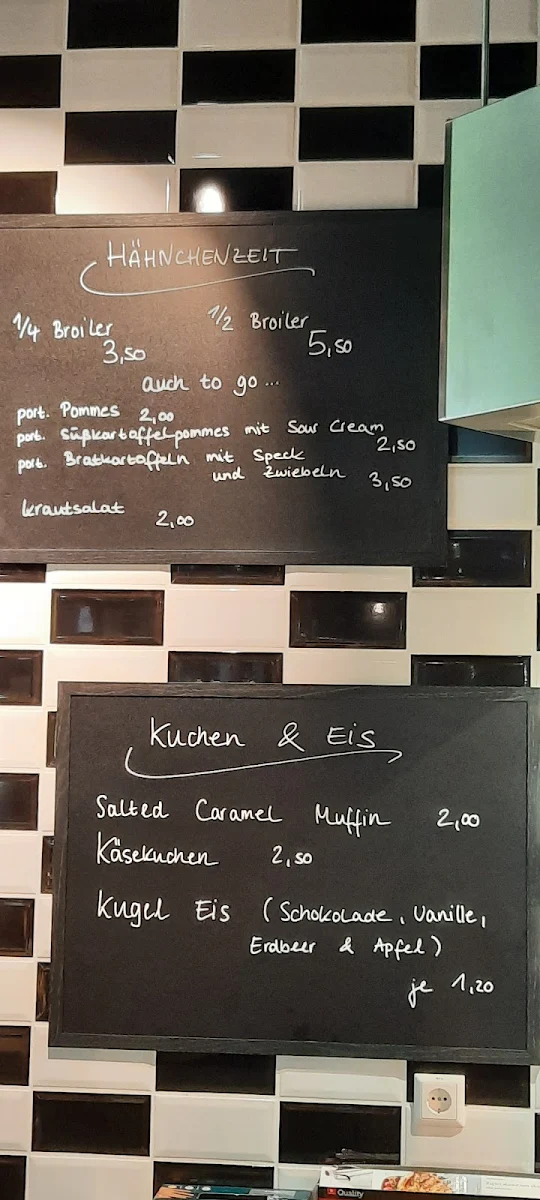 HÄHNCHENZEIT
1/4 Broiler 1/2 Broiler
3,50 5,50
auch to go ...
port. Pommes 2,00
port. Süßkartoffelpommes mit Sour Cream
2,50
port. Bratkartoffeln mit Speck
und Zwiebeln 3,50
Krautsalat 2,00
Kuchen & Eis
Salted Caramel Muffin 2,00
Käsekuchen 2,50
Kugel Eis (Schokolade, Vanille,
Erdbeer & Apfel)
je 1,20
Quality